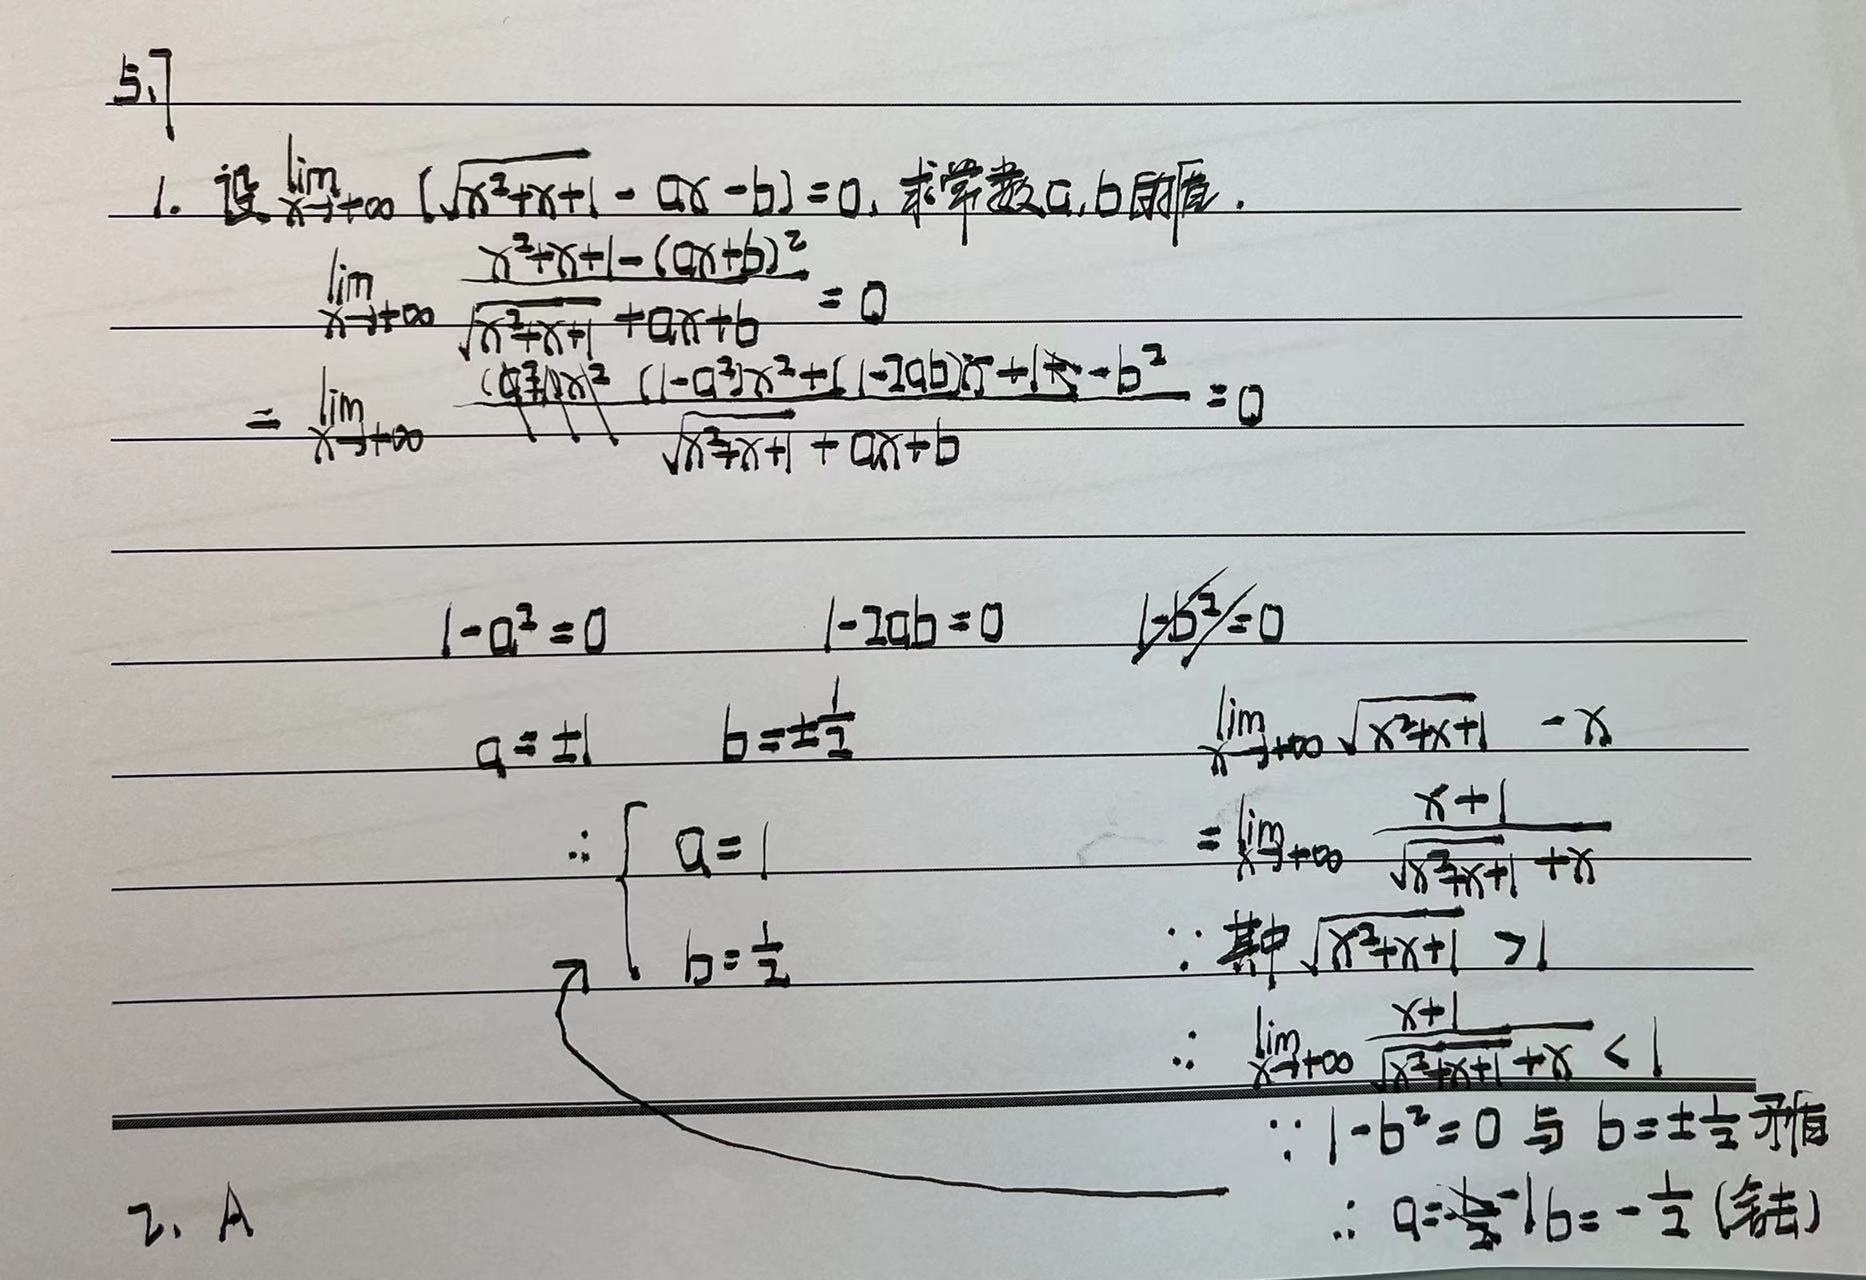 5.7
1. 设 lim x→+∞ (√(x²+x+1) - ax - b) = 0, 求常数a,b的值.
lim x→+∞ (x²+x+1-(ax+b)²)/(√(x²+x+1) +ax+b) = 0
= lim x→+∞ ((1-a²)x²+(1-2ab)x+1-b²)/(√(x²+x+1) + ax+b) = 0
1-a²=0 1-2ab=0 1-b²=0
a=±1 b=±1/2
∴ { a=1
b=1/2
lim x→+∞ √(x²+x+1) - x
= lim x→+∞ (x+1)/(√(x²+x+1) +x)
∵ 其中 √(x²+x+1) >1
∴ lim x→+∞ (x+1)/(√(x²+x+1) +x) < 1
∵ 1-b²=0 与 b=±1/2 矛盾
∴ a=-1 b=-1/2 (舍去)
2. A